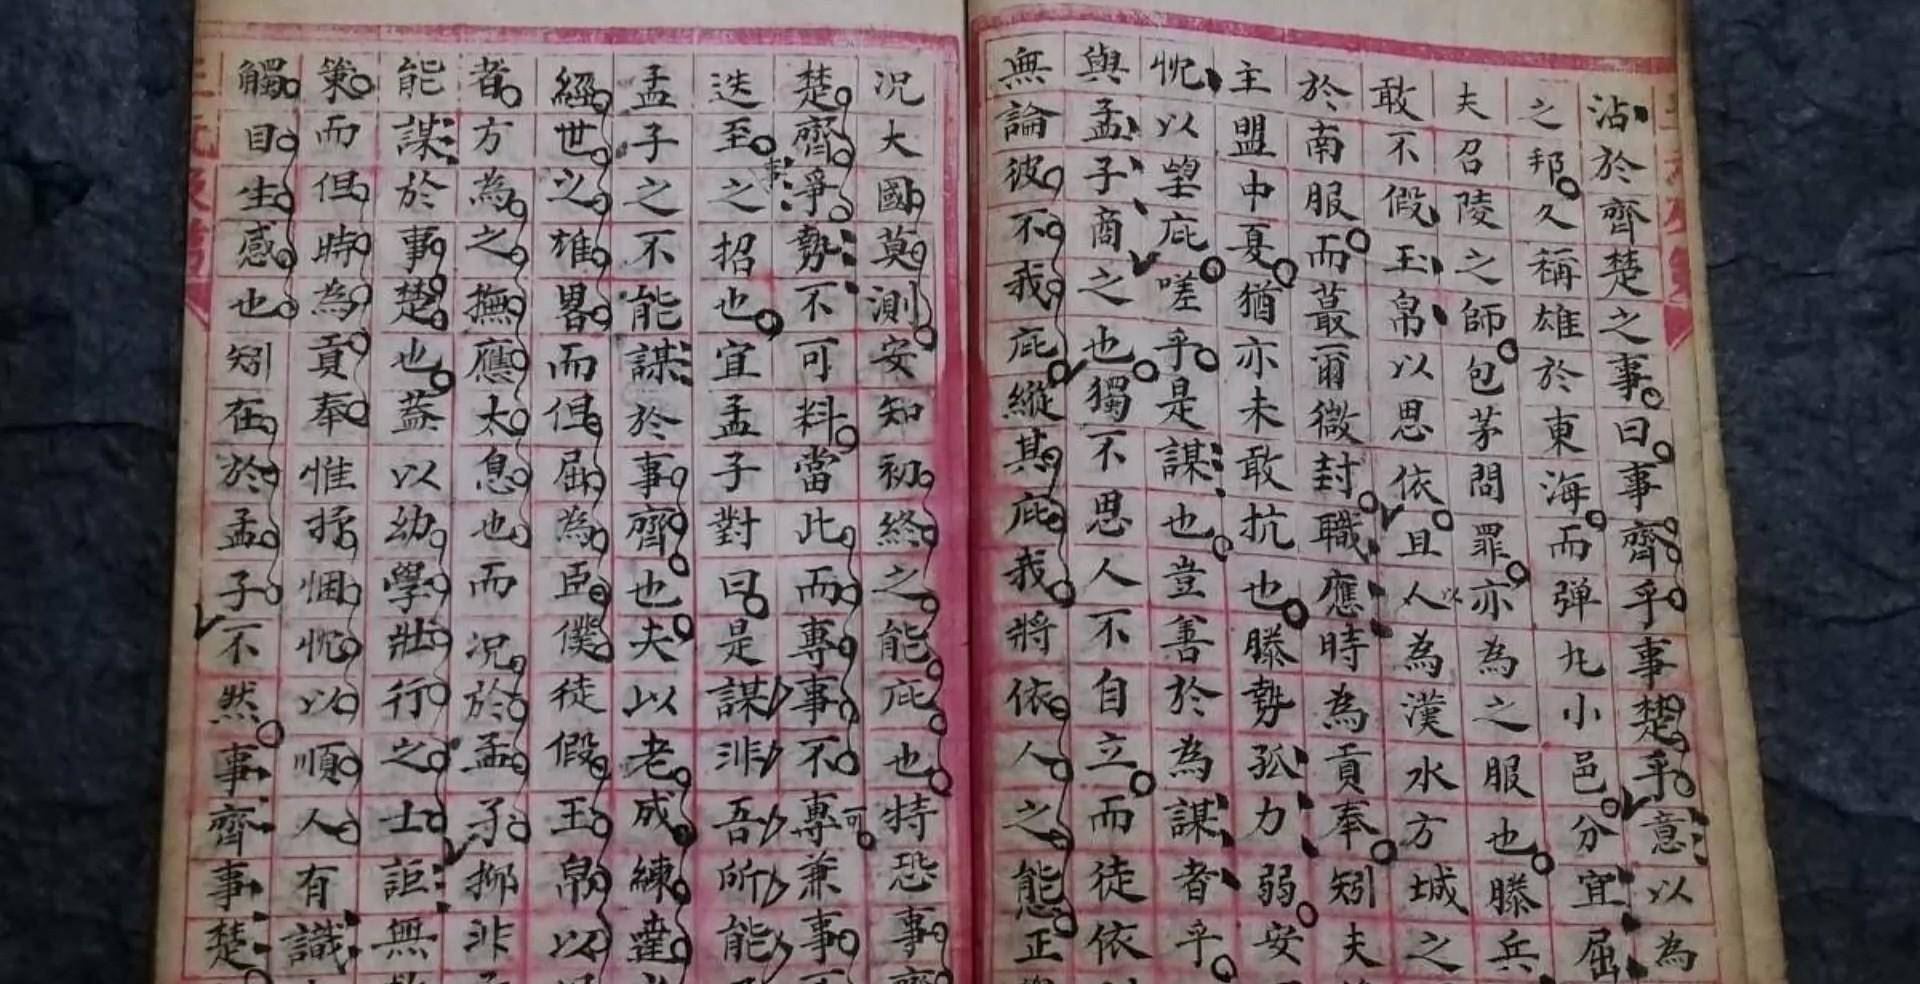 沾於齊楚之事曰事齊乎事楚乎意以為
之邦久稱雄於東海而弹丸小邑分宜屈
夫召陵之師包茅問罪亦為之服也滕兵
敢不假玉帛以思依且人以為漢水方城之
於南服而蕞爾微封職應時為貢奉矧夫
主盟中夏猶亦未敢抗也滕勢孤力弱安
忱以望庇嗟乎是謀也豈善於為謀者乎
與孟子商之也獨不思人不自立而徒依
無論彼不我庇縱其庇我將依人之能正
況大國莫測安知初終之能庇也特恐事齊
楚齊爭勢不可料當此而專事不專可兼事不
迭至之招也宜孟子對曰是謀非吾所能
孟子之不能謀於事齊也夫以老成練達
經世之雄畧而但屈為臣僕徒假玉帛以
者方為之撫應太息也而況於孟子抑非孟
能謀於事楚也蓋以幼學壯行之士詎無
策而但時為貢奉惟抒悃忱以順人有識
觸目生感也矧在於孟子不然事齊事楚